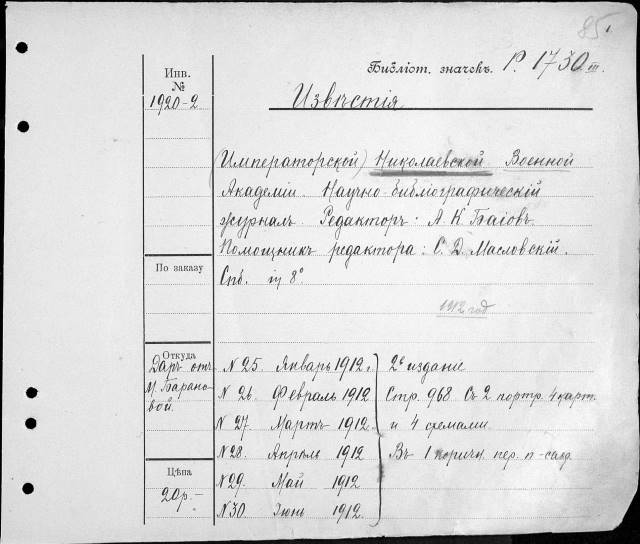 85.
Библіот. значекъ. Р. 1730 III.
Инв.
№
1920-2
Извѣстія
(Императорской) Николаевской Военной
Академіи. Научно-библіографическій
журналъ. Редакторъ: А. К. Баіовъ.
Помощникъ редактора: С. Д. Масловскій.
По заказу
Спб. in 8°
1912 год
Откуда
Даръ отъ
М. Барано-
вой.
№ 25 Январь 1912 г.
№ 26. Февраль 1912
№ 27. Мартъ 1912.
№ 28. Апрѣль 1912
№ 29. Май 1912
№ 30 Іюнь 1912.
2е изданіе
Стр. 968. Съ 2 портр. 4 карт.
и 4 схемами.
Въ 1 коричн. пер. п-саод
Цѣна
20 р.-